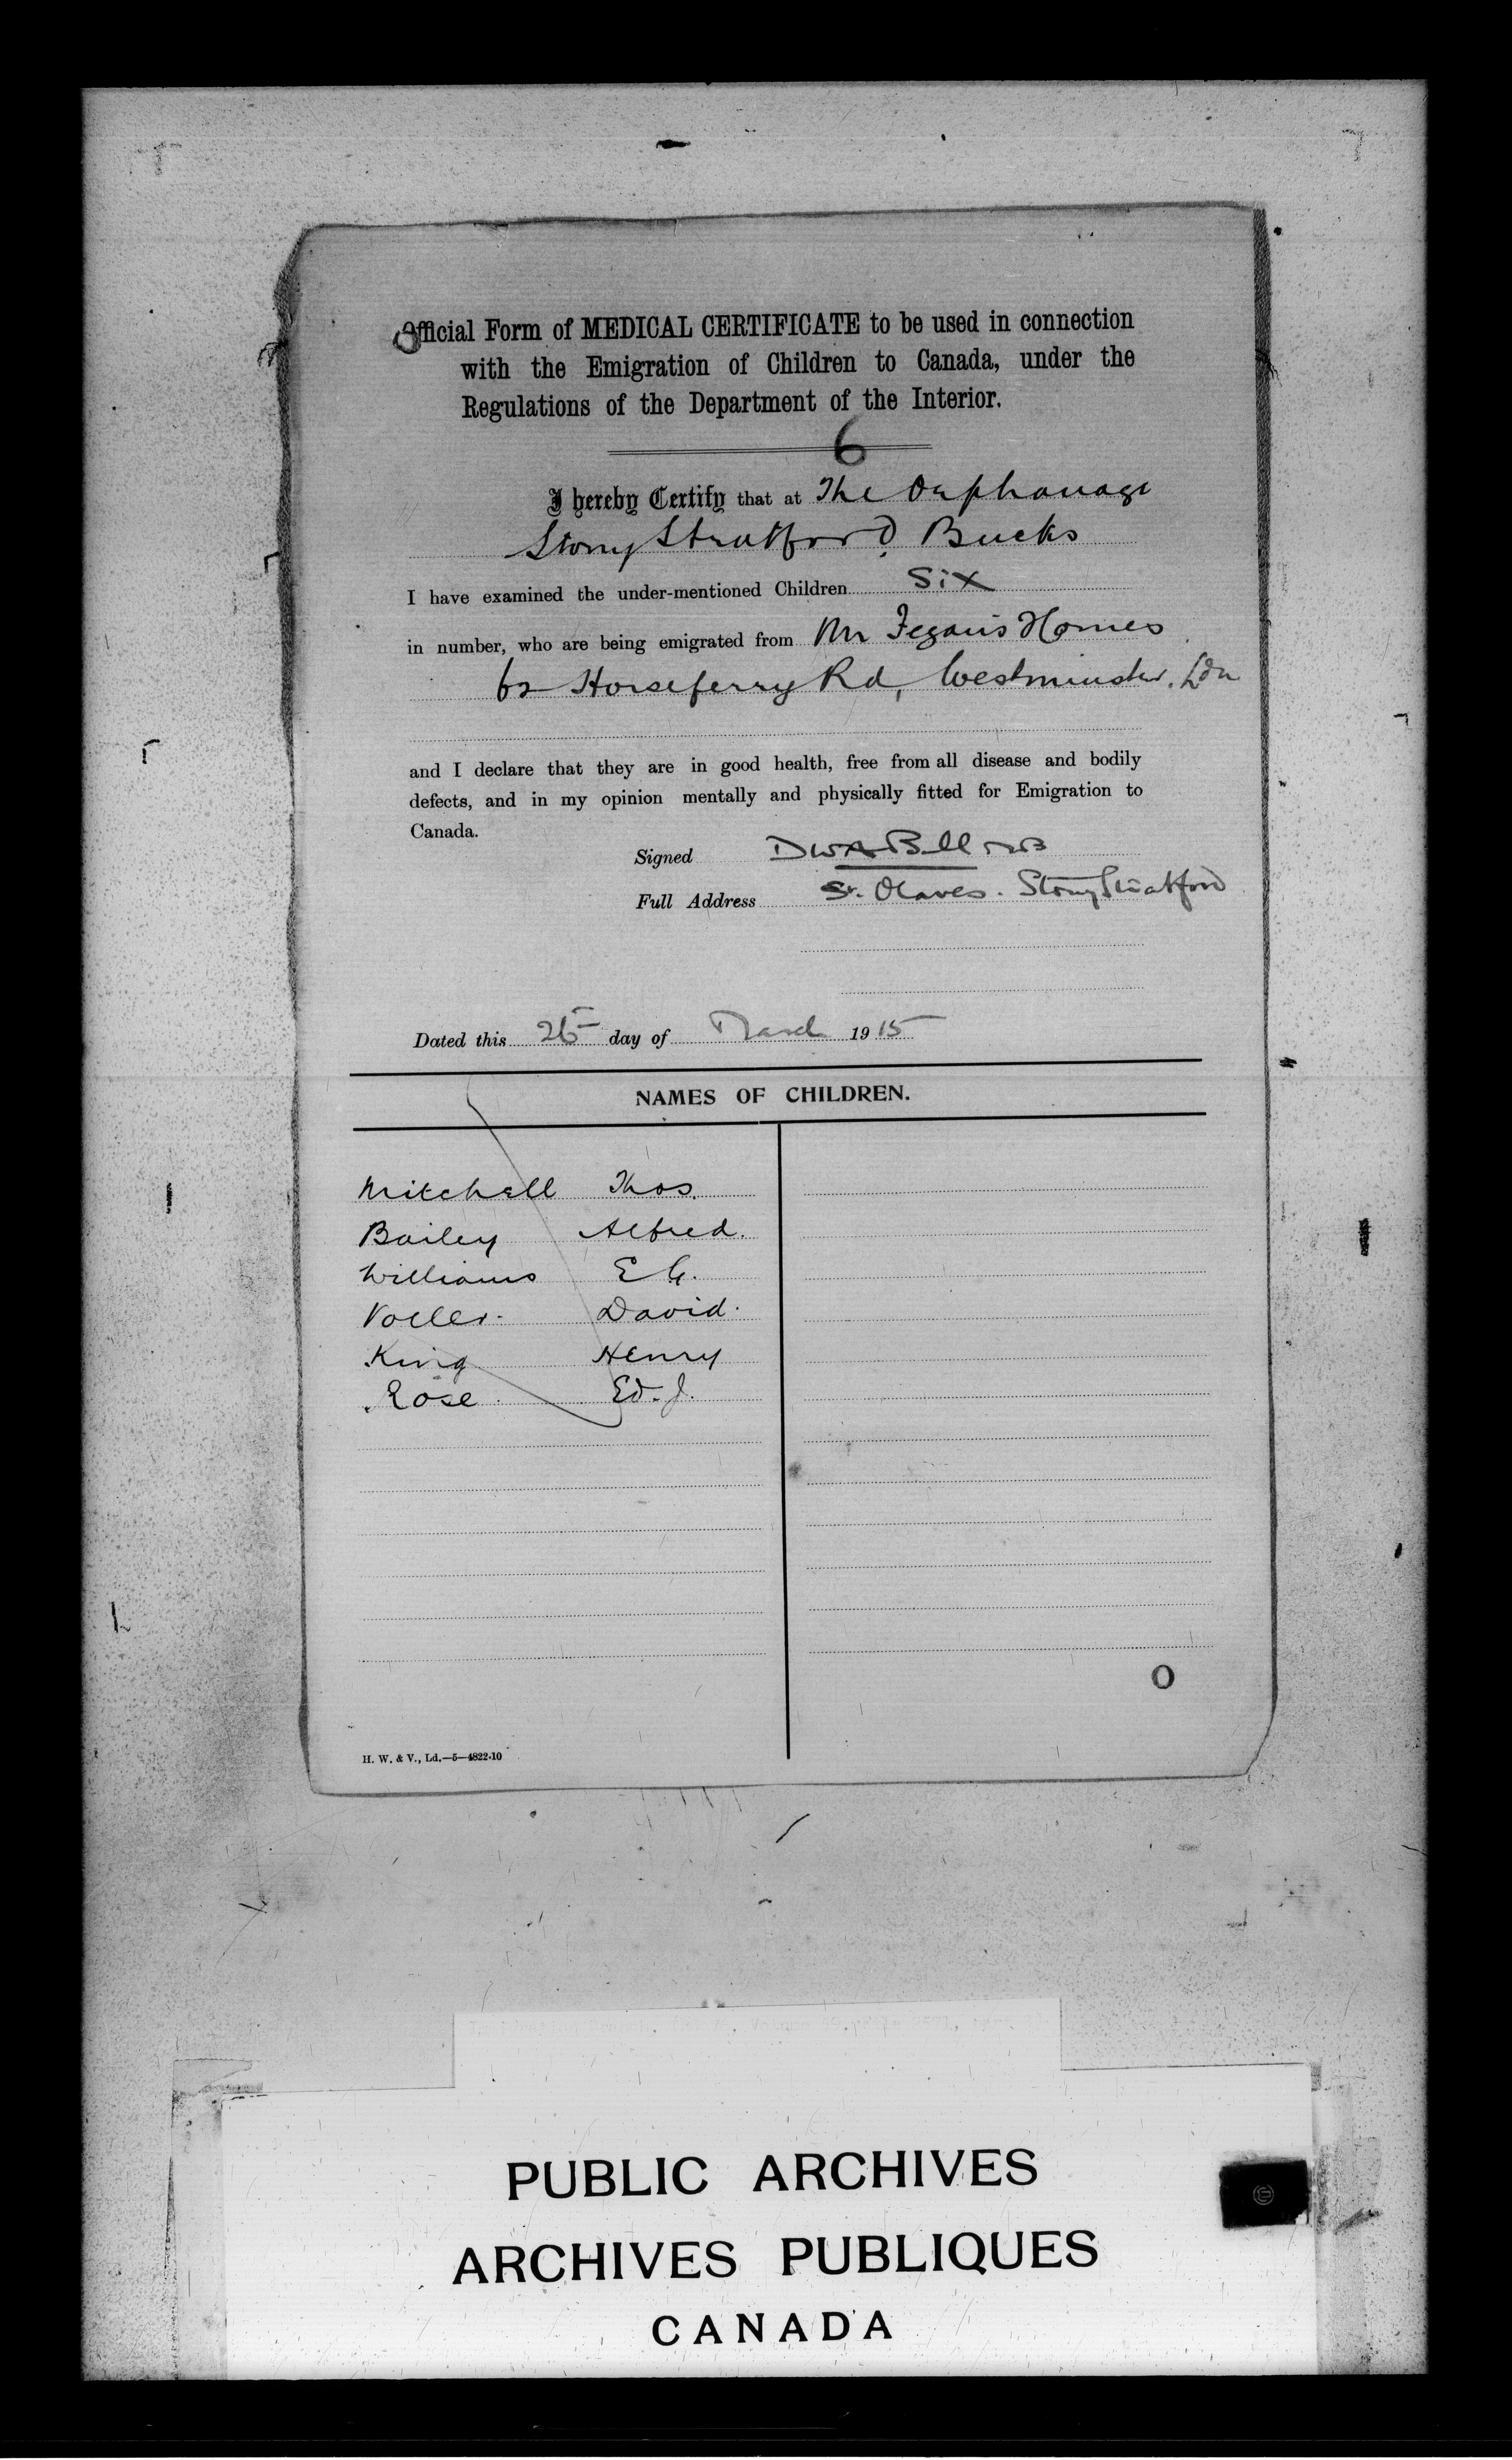 Official Form of MEDICAL CERTIFICATE to be used in connection
with the Emigration of Children to Canada, under the
Regulations of the Department of the Interior.
6
I hereby Certify that at The Orphanage
Stony Stratford Bucks
I have examined the under-mentioned Children Six
in number, who are being emigrated from Mr Fegan's Homes
62 Horseferry Rd, Westminster. Ldn
and I declare that they are in good health, free from all disease and bodily
defects, and in my opinion mentally and physically fitted for Emigration to
Canada.
Signed DWA Bull MB
Full Address St. Olaves. Stony Stratford
Dated this 26 day of March 1915
NAMES OF CHILDREN.
Mitchell Thos.
Bailey Alfred.
Williams E G.
Voller. David.
King Henry
Rose Ed. J.
O
H. W. & V., Ld.—5—4822-10
PUBLIC ARCHIVES
ARCHIVES PUBLIQUES
CANADA